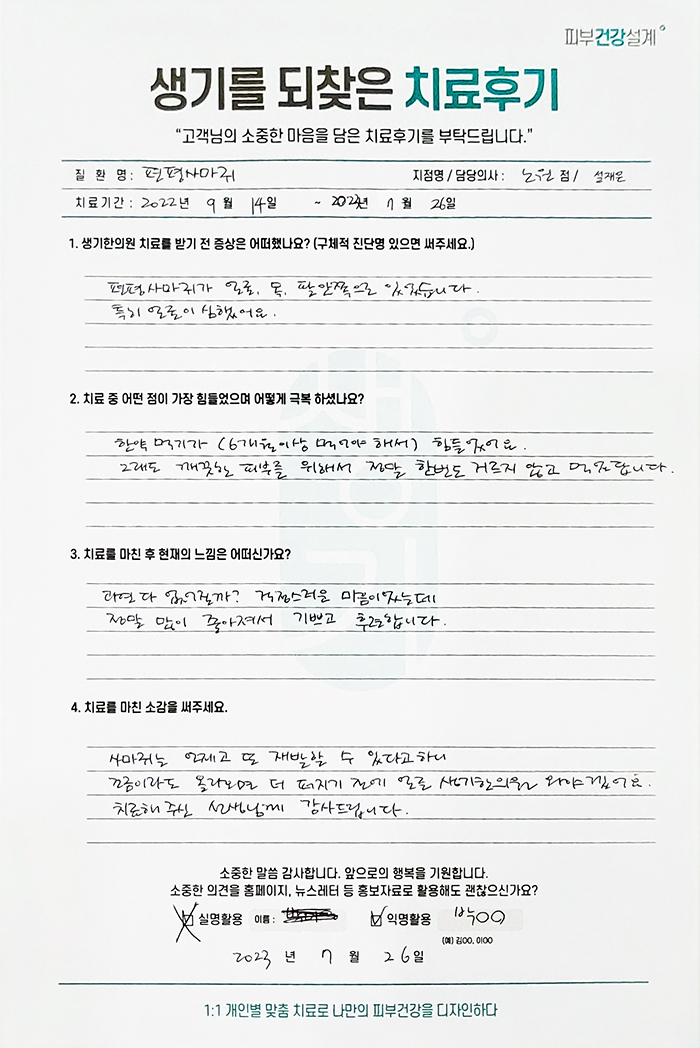 피부건강설계
생기를 되찾은 치료후기
“고객님의 소중한 마음을 담은 치료후기를 부탁드립니다.”
질 환 명 : 편평사마귀 지점명 / 담당의사 : 노원 점 / 설재은
치료기간 : 2022년 9 월 14일 ~ 2023년 7 월 26일
1. 생기한의원 치료를 받기 전 증상은 어떠했나요? (구체적 진단명 있으면 써주세요.)
편평사마귀가 얼굴, 목, 팔 안쪽으로 있었습니다.
특히 얼굴이 심했어요.
2. 치료 중 어떤 점이 가장 힘들었으며 어떻게 극복 하셨나요?
한약 먹기가 (6개월이상 먹어야 해서) 힘들었어요.
그래도 깨끗한 피부를 위해서 정말 한번도 거르지 않고 먹었답니다.
3. 치료를 마친 후 현재의 느낌은 어떠신가요?
과연 다 없어질까? 걱정스러운 마음이었는데
정말 많이 좋아져서 기쁘고 후련합니다.
4. 치료를 마친 소감을 써주세요.
사마귀는 언제고 또 재발할 수 있다고하니
조금이라도 올라오면 더 퍼지기 전에 얼른 생기한의원 와야겠어요.
치료해 주신 선생님께 감사드립니다.
소중한 말씀 감사합니다. 앞으로의 행복을 기원합니다.
소중한 의견을 홈페이지, 뉴스레터 등 홍보자료로 활용해도 괜찮으신가요?
실명활용 이름 : 익명활용 박OO
(예) 김OO, 이OO
2023 년 7 월 26일
1:1 개인별 맞춤 치료로 나만의 피부건강을 디자인하다